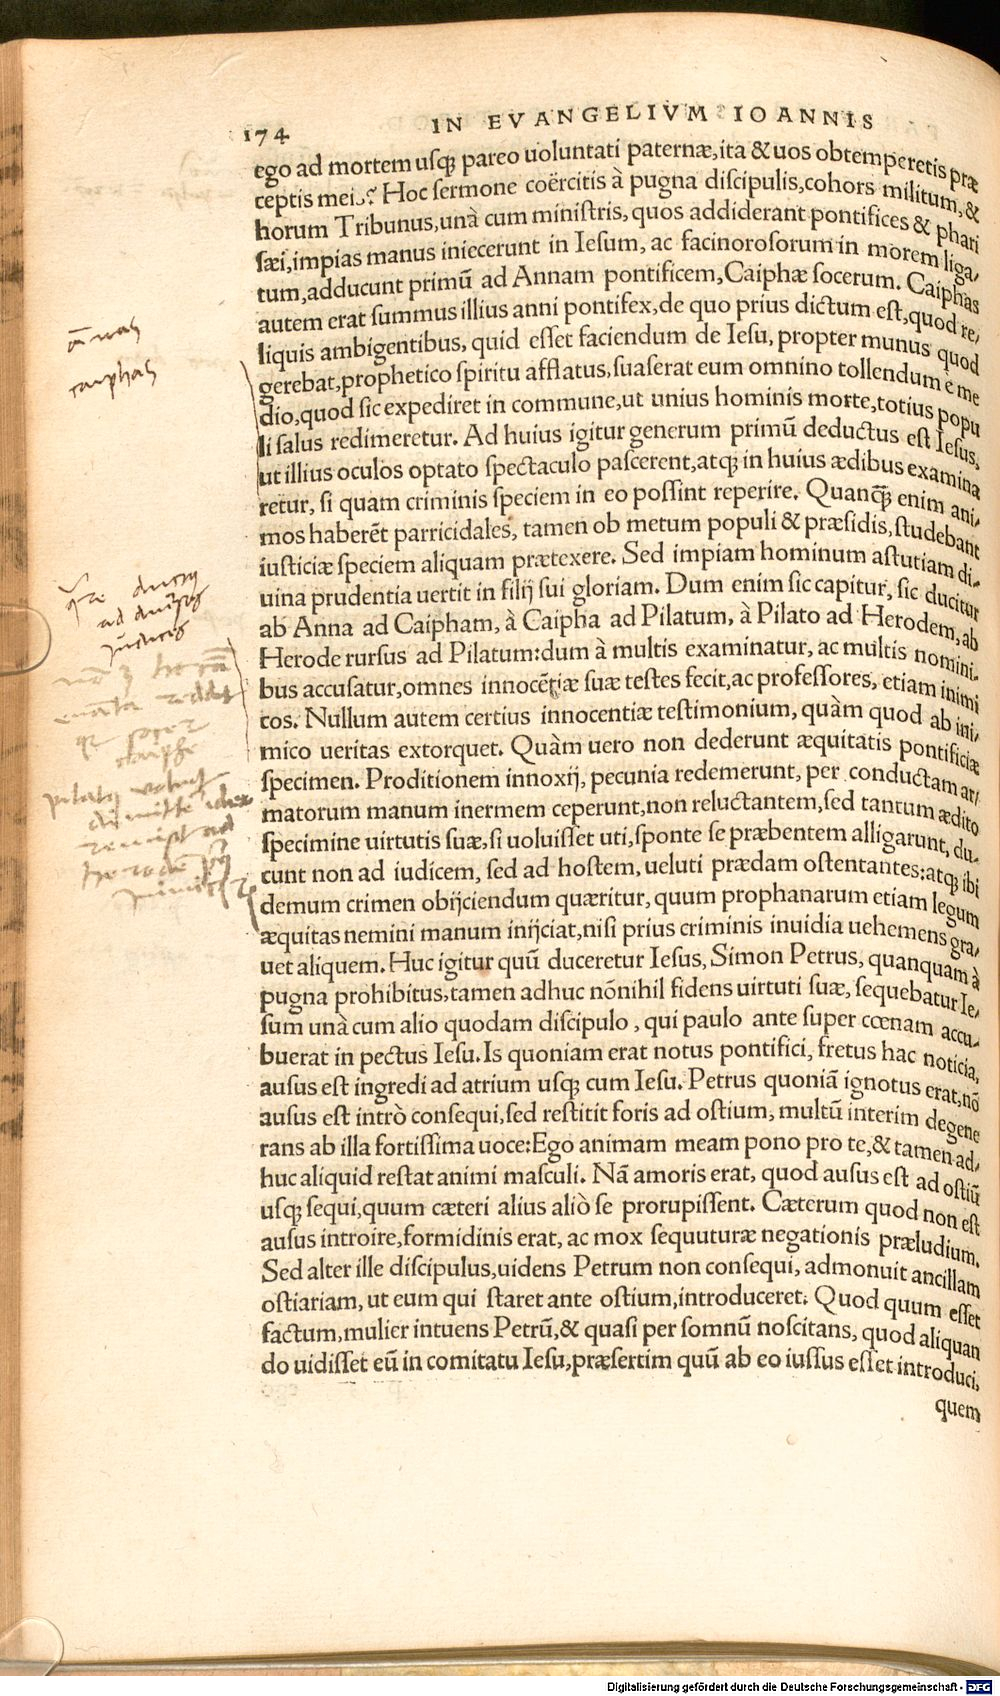 174 IN EVANGELIVM IOANNIS
ego ad mortem usq; pareo uoluntati paternæ, ita & uos obtemperetis præ
ceptis meis? Hoc sermone coërcitis à pugna discipulis, cohors militum, &
horum Tribunus, unà cum ministris, quos addiderant pontifices & phari
sæi, impias manus iniecerunt in Iesum, ac facinorosorum in morem liga-
tum, adducunt primũ ad Annam pontificem, Caiphæ socerum. Caiphas
autem erat summus illius anni pontifex, de quo prius dictum est, quod re-
liquis ambigentibus, quid esset faciendum de Iesu, propter munus quod
gerebat, prophetico spiritu afflatus, suaserat eum omnino tollendum e me
dio, quod sic expediret in commune, ut unius hominis morte, totius popu
li salus redimeretur. Ad huius igitur generum primũ deductus est Iesus,
ut illius oculos optato spectaculo pascerent, atq; in huius ædibus examina
retur, si quam criminis speciem in eo possint reperire. Quanq̃ enim ani-
mos haberẽt parricidales, tamen ob metum populi & præsidis, studebant
iusticiæ speciem aliquam prætexere. Sed impiam hominum astutiam di-
uina prudentia uertit in filij sui gloriam. Dum enim sic capitur, sic ducitur
ab Anna ad Caipham, à Caipha ad Pilatum, à Pilato ad Herodem, ab
Herode rursus ad Pilatum: dum à multis examinatur, ac multis nomini-
bus accusatur, omnes innocẽtiæ suæ testes fecit, ac professores, etiam inimi
cos. Nullum autem certius innocentiæ testimonium, quàm quod ab ini-
mico ueritas extorquet. Quàm uero non dederunt æquitatis pontificiæ
specimen. Proditionem innoxij, pecunia redemerunt, per conductam ar-
matorum manum inermem ceperunt, non reluctantem, sed tantum ædito
specimine uirtutis suæ, si uoluisset uti, sponte se præbentem alligarunt, du-
cunt non ad iudicem, sed ad hostem, ueluti prædam ostentantes: atq; ibi
demum crimen obijciendum quæritur, quum prophanarum etiam legum
æquitas nemini manum inijciat, nisi prius criminis inuidia uehemens gra-
uet aliquem. Huc igitur quũ duceretur Iesus, Simon Petrus, quanquam à
pugna prohibitus, tamen adhuc nõnihil fidens uirtuti suæ, sequebatur Ie-
sum unà cum alio quodam discipulo, qui paulo ante super cœnam accu-
buerat in pectus Iesu. Is quoniam erat notus pontifici, fretus hac noticia,
ausus est ingredi ad atrium usq; cum Iesu. Petrus quoniã ignotus erat, nõ
ausus est intrò consequi, sed restitit foris ad ostium, multũ interim degene
rans ab illa fortissima uoce: Ego animam meam pono pro te, & tamen ad-
huc aliquid restat animi masculi. Nã amoris erat, quod ausus est ad ostiũ
usq; sequi, quum cæteri alius aliò se prorupissent. Cæterum quod non est
ausus introire, formidinis erat, ac mox sequuturæ negationis præludium.
Sed alter ille discipulus, uidens Petrum non consequi, admonuit ancillam
ostiariam, ut eum qui staret ante ostium, introduceret. Quod quum esset
factum, mulier intuens Petrũ, & quasi per somnũ noscitans, quod aliquan
do uidisset eũ in comitatu Iesu, præsertim quũ ab eo iussus esset introduci,
quem
ãnas
caiphas
Digitalisierung gefördert durch die Deutsche Forschungsgemeinschaft - DFG